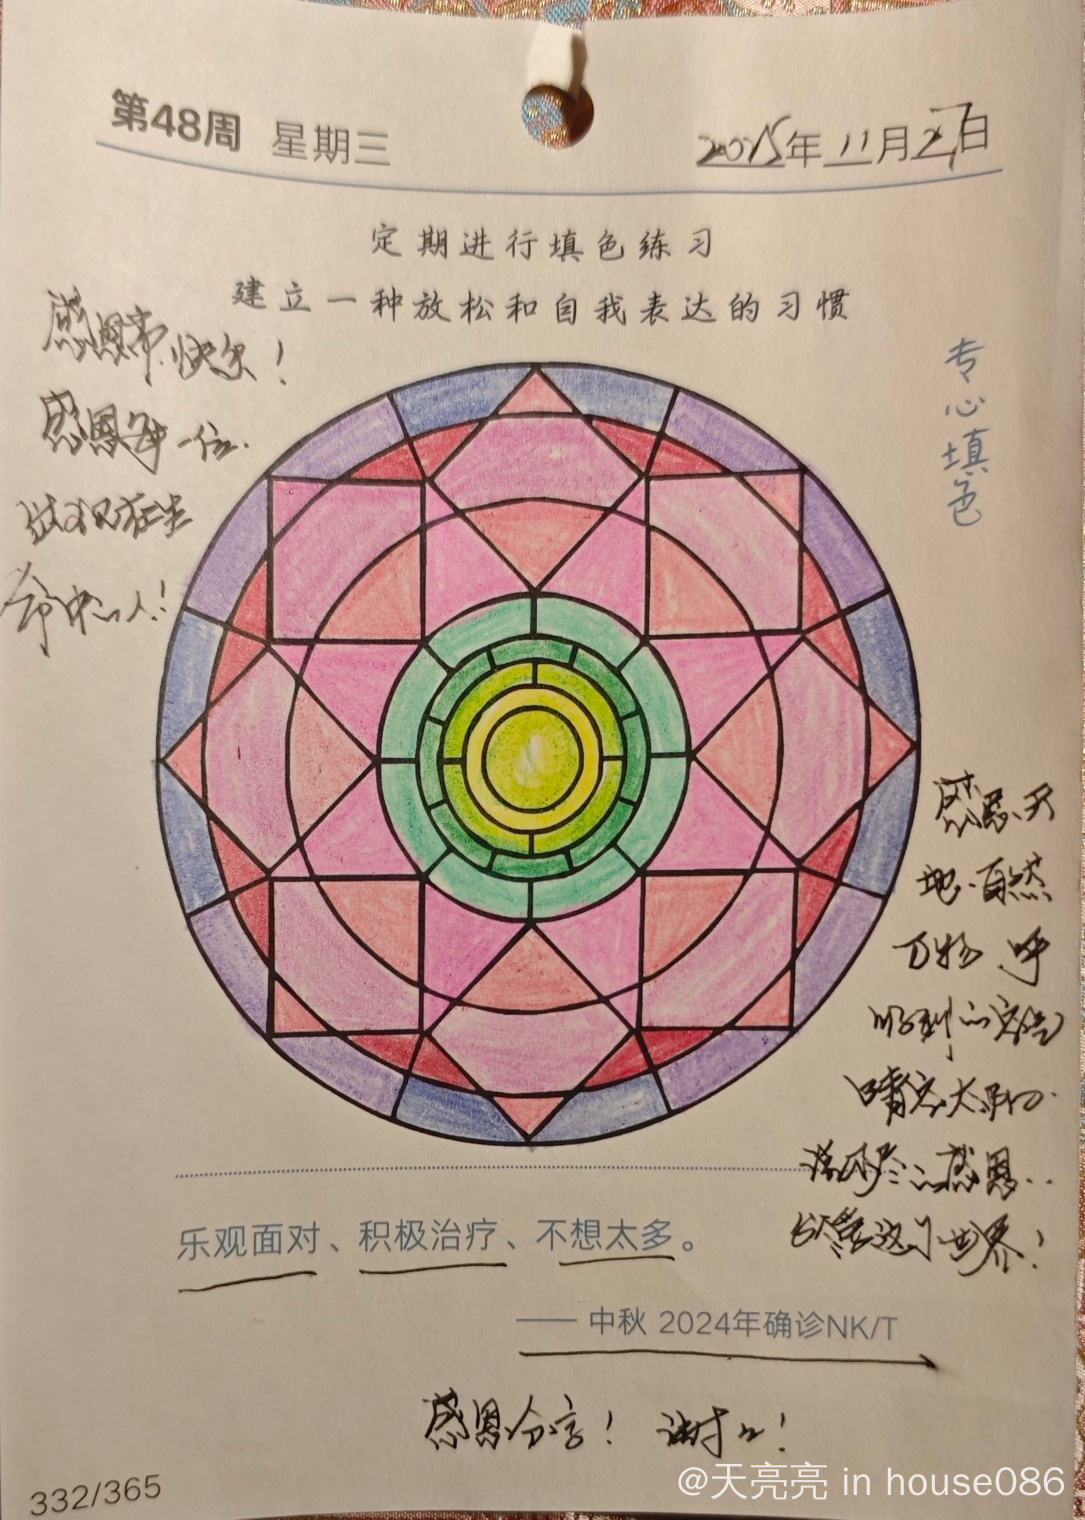 第48周 星期三
2025年11月27日
定期进行填色练习
建立一种放松和自我表达的习惯
专心填色
感恩节快乐！
感恩每一位
出现在生
命中的人！
感恩天
地·自然
万物
感恩
这个世界！
乐观面对、积极治疗、不想太多。
—— 中秋 2024年确诊NK/T
感恩分享！谢谢！
332/365
@天亮亮 in house086